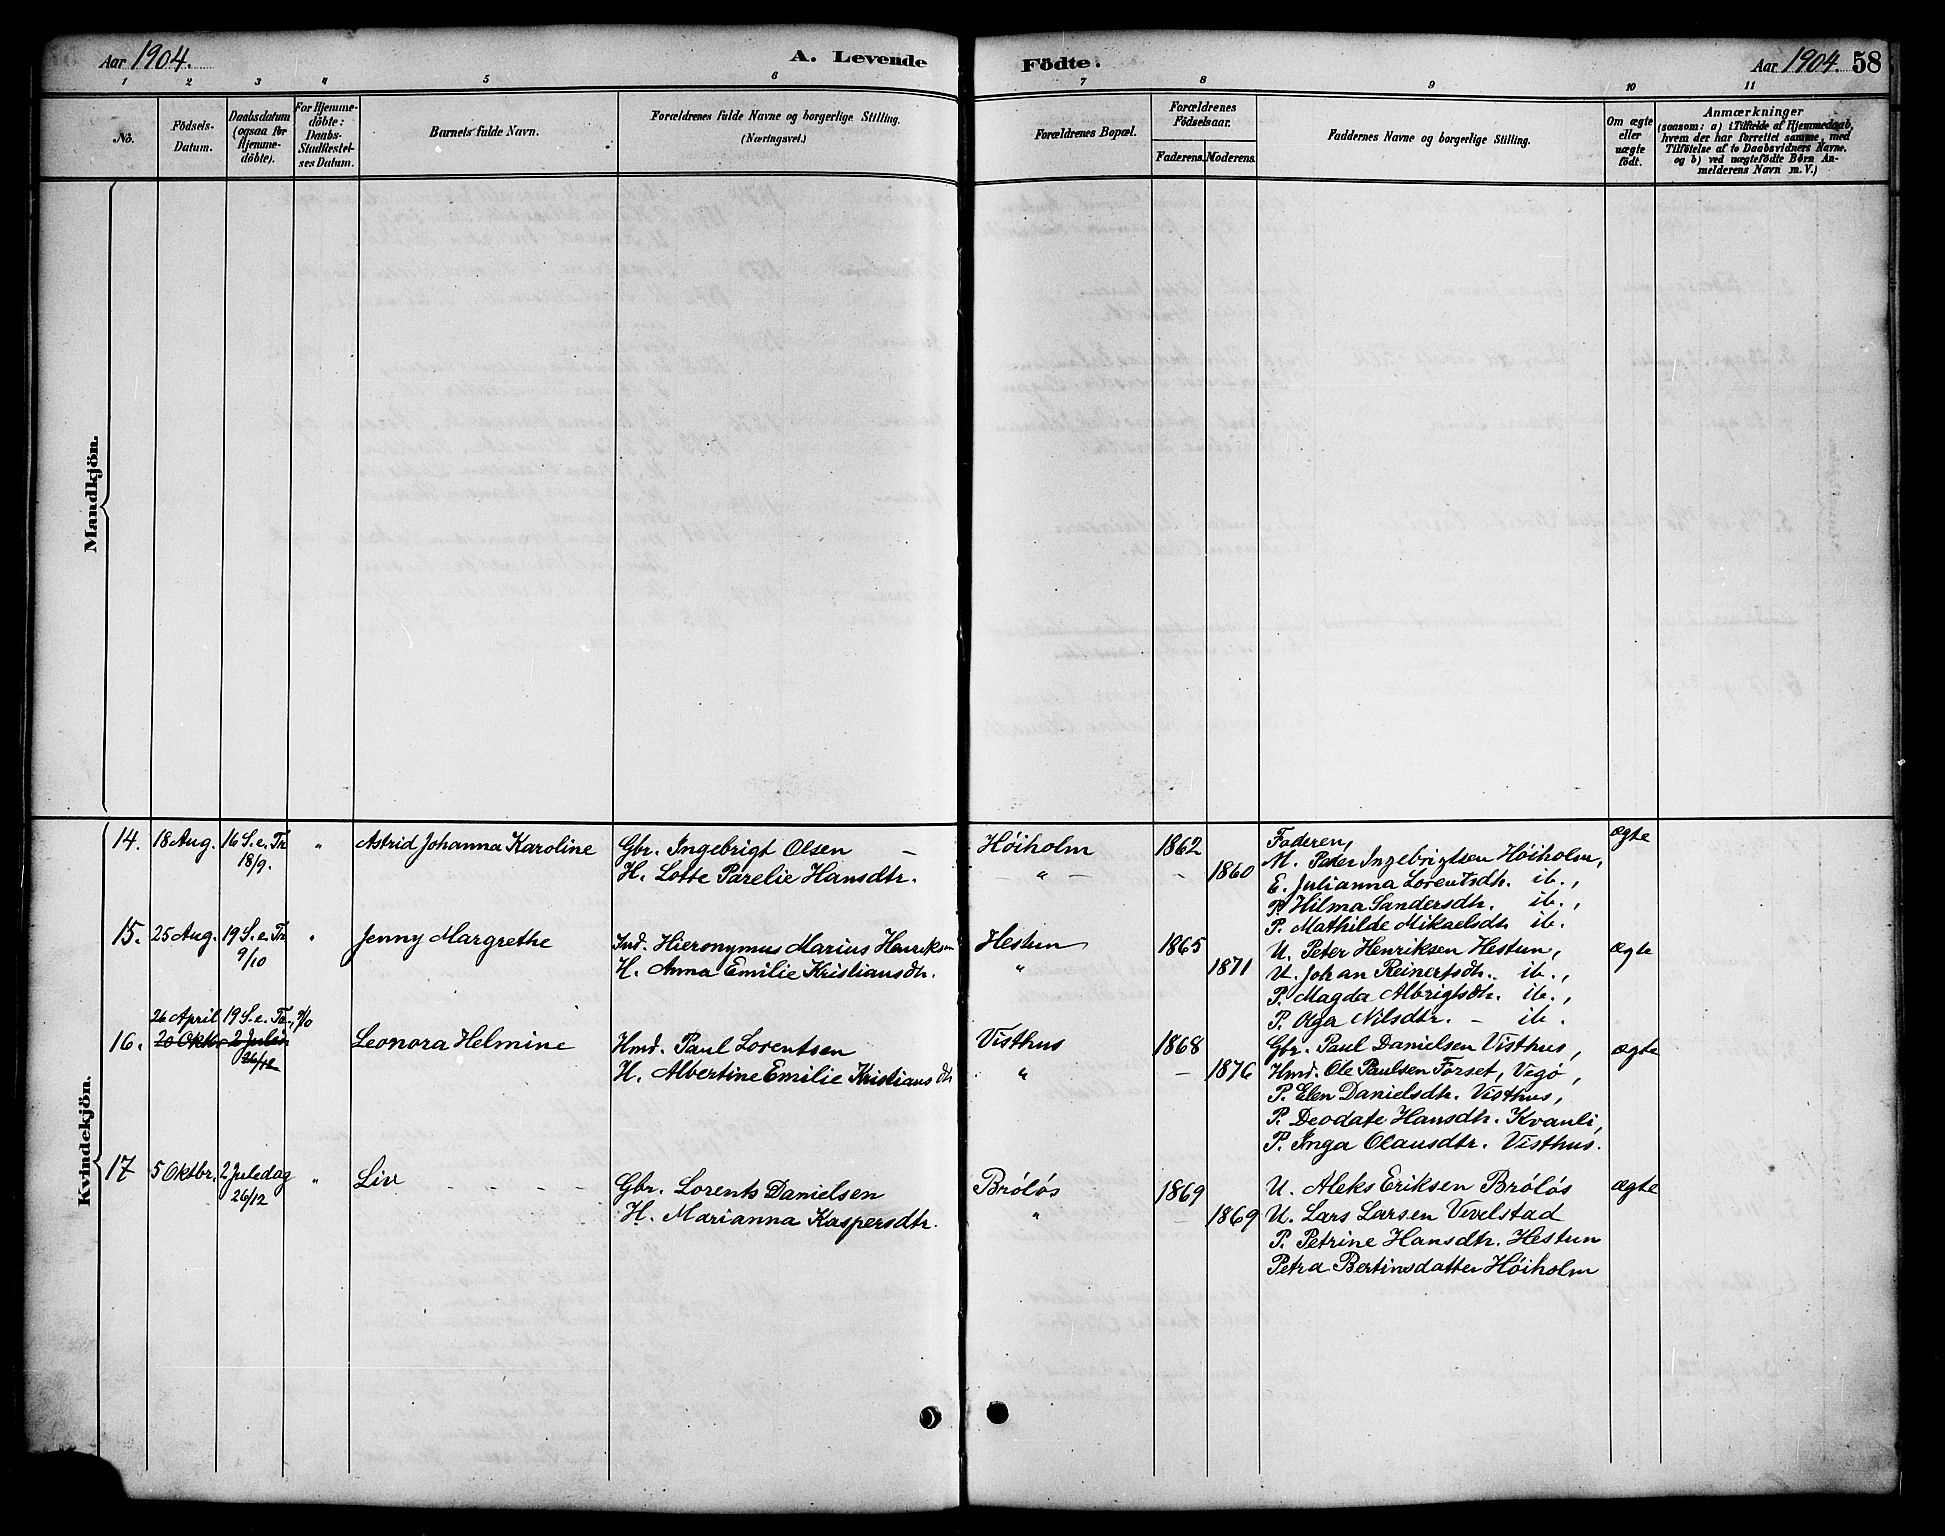 Aar 1904.
A. Levende
Födte.
Aar 1904. 58
1 2 3 4 5 6 7 8 9 10 11
No.
Födsels-
Datum.
Daabsdatum
(ogsaa for
Hjemme-
döbte).
For Hjemme-
döbte:
Daabs-
Stadfæstel-
ses Datum.
Barnets fulde Navn.
Forældrenes fulde Navne og borgerlige Stilling.
(Næringsvei.)
Forældrenes Bopæl.
Forældrenes
Födselsaar.
Faderens. Moderens.
Faddernes Navne og borgerlige Stilling.
Om ægte
eller
uægte
födt.
Anmærkninger
(saasom: a) i Tilfælde af Hjemmedaab,
hvem der har forrettet samme, med
Tilföielse af to Daabsvidners Navne,
og b) ved uægtefödte Börn An-
melderens Navn m. V.)
Mandkjön.
Kvindekjön.
14. 18 Aug. 16 S. e. Tr
18/9.
" Astrid Johanna Karoline
Gbr. Ingebrigt Olsen –
H. Lotte Parelie Hansdtr.
Høiholm
– " –
1862
1860
Faderen,
M. Peder Ingebrigtsen Høiholm,
E. Julianna Lorentsdtr. ib.,
P. Hilma Sandersdtr. ib.,
P. Mathilde Mikaelsdtr. ib.
ægte
15. 25 Aug. 19 S. e. Tr
9/10
" Jenny Margrethe
Ind. Hieronymus Marius Henriksen
H. Anna Emilie Kristiansdtr.
Hestun
"
1865
1871
U. Peter Henriksen Hestun,
U. Johan Reinertsdtr. ib.,
P. Magda Albrigtsdtr. ib.,
P. Olga Nilsdtr. – ib.
ægte
26 April 19 S. e. Tr. 9/10
16. 20 Oktbr 2 Juledag
26/12
Leonora Helmine
Hmd. Paul Lorentsen
H. Albertine Emilie Kristiansdtr
Visthus
"
1868
1876
Gbr. Paul Danielsen Visthus,
Hmd. Ole Paulsen Forset, Vegø,
P. Elen Danielsdtr. Visthus,
P. Deodate Hansdtr. Kvanli,
P. Inga Olausdtr. Visthus.
ægte
17 5 Oktbr. 2 Juledag
26/12
" Liv – – – –
Gbr. Lorents Danielsen
H. Marianna Kaspersdtr.
Bróløs
"
1869
1869
U. Aleks Eriksen Bróløs
U. Lars Larsen Vevelstad
P. Petrine Hansdtr. Hestun
Petra Bertinsdatter Høiholm
ægte